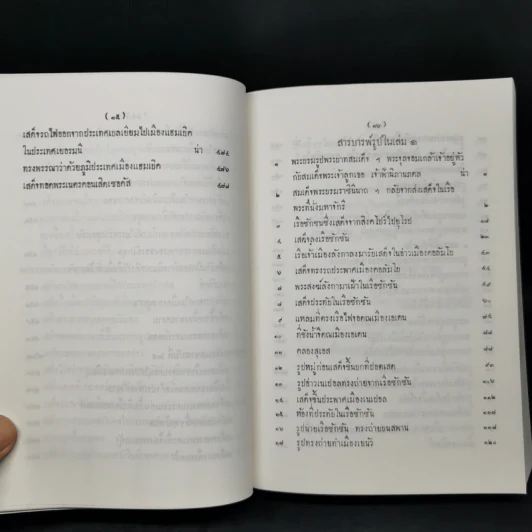 ( ๑๕ )
เสด็จรถไฟออกจากประเทศเยอรมันไปเมืองแฮมเบิค
ในประเทศเยอรมนี น่า ๕๗๔
ทรงพรรณาว่าด้วยภูมิประเทศเมืองแฮมเบิค ๕๗๖
เสด็จทอดพระเนตรคอนเสิตเซอคัส ๕๗๗
( ๑๖ )
สารบารพ์รูปในเล่ม ๑
๑ พระบรมรูปพระบาทสมเด็จ ฯ พระจุลจอมเกล้าเจ้าอยู่หัว
กับสมเด็จพระเจ้าลูกเธอ เจ้าฟ้านิภานภดล น่า ๑
๒ สมเด็จพระบรมราชินีนาถ ฯ กลับจากส่งเสด็จในเรือ
พระที่นั่งมหาจักรี ๒
๓ เรือซักซันซึ่งเสด็จจากสิงคโปร์ไปยุโรป
๔ เสด็จลงเรือซักซัน
๕ เรือเจ้าเมืองลังกาลงมารับเสด็จในอ่าวเมืองคอลัมโบ
๖ เสด็จทรงรถประพาศเมืองคอลัมโบ
๗ พระสงฆ์ลังกามาเฝ้าในเรือซักซัน
๘ เสด็จประทับในเรือซักซัน
๙ แหลมที่ตรงเรือไฟจอดณเมืองเอเดน
๑๐ ที่ขังน้ำจืดณเมืองเอเดน
๑๑ คลองสุเอส
๑๒ รูปหมู่ก่อนเสด็จขึ้นบกที่ปอดเสด
๑๓ รูปอ่าวเนเปอลทรงถ่ายจากเรือซักซัน ๑๑๖
๑๔ เสด็จขึ้นประพาศเมืองเนเปอล
๑๕ ห้องที่ประทับในเรือซักซัน
๑๖ รูปนายเรือซักซัน ทรงถ่ายบนสพาน ๑๑๘
๑๗ รูปทรงถ่ายท่าเมืองเยนัว ๑๒๐